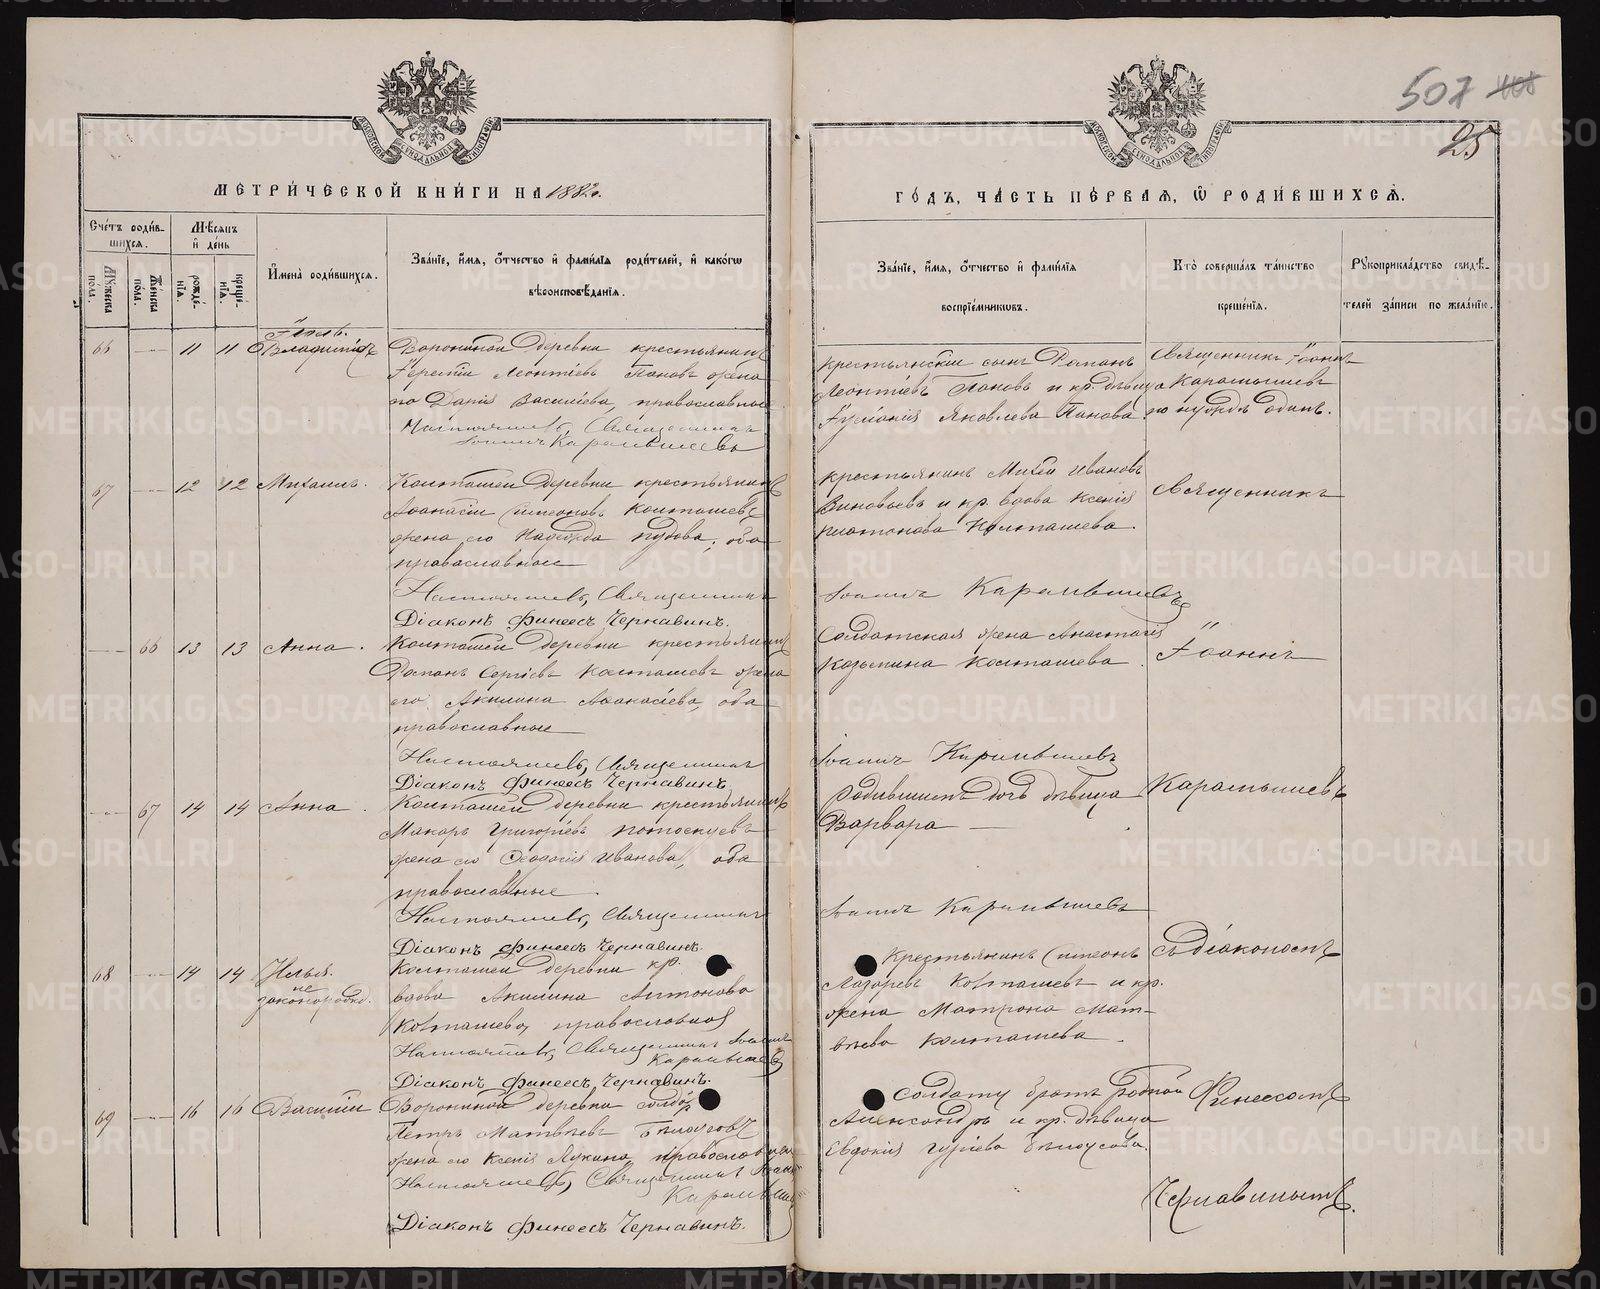 507
25
МЕТРИЧЕСКОЙ КНИГИ НА 1882 г.
Счетъ родив-
шихся.
Мѣсяцъ
и день
Мужеска
пола.
Женска
пола.
рожде-
нія.
креще-
нія.
Имена родившихся.
Званіе, имя, отчество и фамилія родителей, и какого
вѣроисповѣданія.
Іюль.
66 11 11 Владиміръ
Ворониной деревни крестьянинъ
Іеремій Леонтіевъ Пановъ жена
его Дарія Васильева, православные
Священникъ
Іоаннъ Карамышевъ
67 12 12 Михаилъ.
Колташей деревни крестьянинъ
Аѳанасій Симеоновъ Колташевъ
жена его Надежда, оба
православные
Священникъ
Діаконъ Финеесъ Чернавинъ.
66 13 13 Анна.
Колташей деревни крестьянинъ
Романъ Сергіевъ Колташевъ жена
его Акилина Аѳанасіева, оба
православные
Священникъ
Діаконъ Финеесъ Чернавинъ.
67 14 14 Анна.
Колташей деревни крестьянинъ
Макаръ Григоріевъ Потоскуевъ
жена его Ѳеодосія Иванова, оба
православные.
Священникъ
Діаконъ Финеесъ Чернавинъ.
68 14 14 Илья.
не
законорожд.
Колташей деревни кр.
вдова Акилина Антонова
Колташева, православная
Священникъ Іоаннъ
Карамышевъ
Діаконъ Финеесъ Чернавинъ.
69 16 16 Василій
Ворониной деревни солдатъ
Петръ Матвѣевъ Бѣлоусовъ
жена его Ксенія Лукина православные
Священникъ
Діаконъ Финеесъ Чернавинъ.
ГОДЪ, ЧАСТЬ ПЕРВАЯ, Ѡ РОДИВШИХСЯ.
Званіе, имя, отчество и фамилія
воспріемниковъ.
Кто совершалъ таинство
крещенія.
Рукоприкладство свидѣ-
телей записи по желанію.
крестьянскій сынъ Романъ
Леонтіевъ Пановъ и кр. дѣвица
Іуліанія Яковлева Панова.
Священникъ Іоаннъ
Карамышевъ
по нуждѣ одинъ.
крестьянинъ Михей Ивановъ
и кр. вдова Ксенія
Платонова Колташева.
Священникъ
Іоаннъ Карамышевъ
Солдатская жена Анастасія
Козьмина Колташева.
Іоаннъ
Іоаннъ Карамышевъ
родившихъ дочь дѣвица
Варвара
Карамышевъ
Іоаннъ Карамышевъ
Крестьянинъ Симеонъ
Лазаревъ Колташевъ и кр.
жена Матрона Мат-
вѣева Колташева.
съ діакономъ
солдату братъ родной
Александръ и кр. дѣвица
Евдокія Гуріева Бѣлоусова.
Финеесомъ
Чернавинымъ.
METRIKI.GASO-URAL.RU